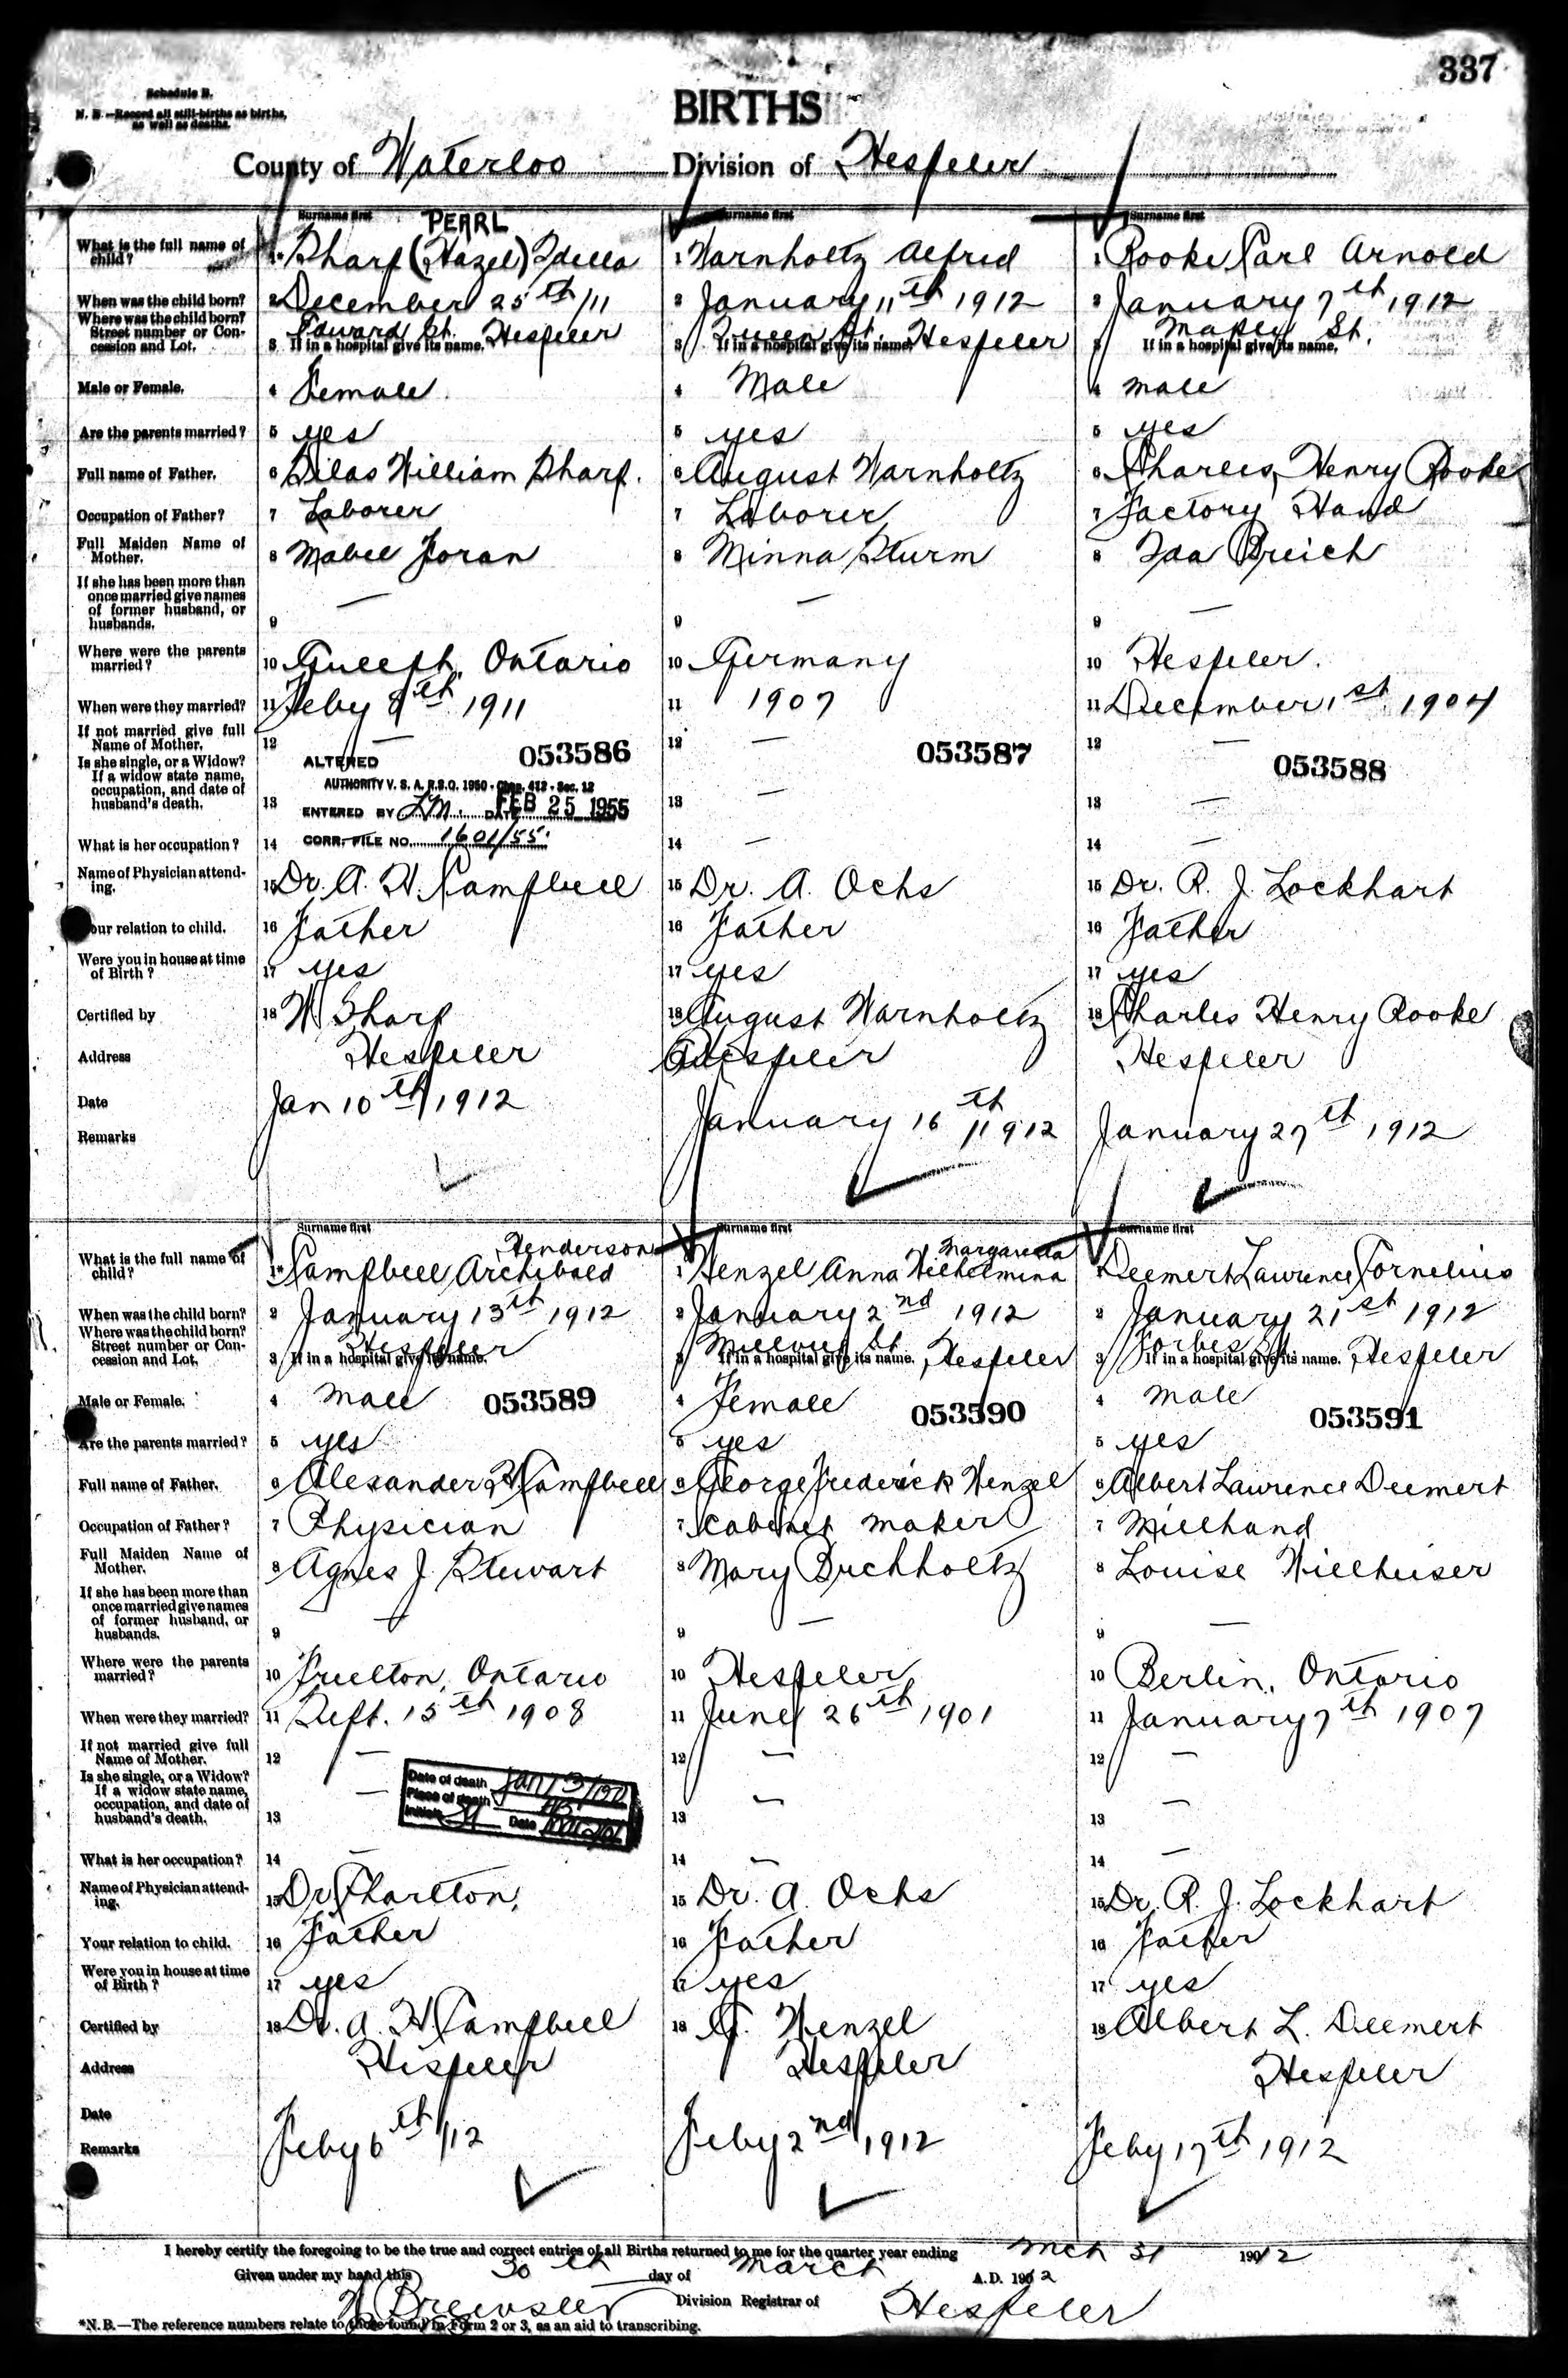 337
Schedule B.
N. B.—Record all still-births as births,
as well as deaths.
BIRTHS
County of Waterloo Division of Hespeler
Surname first PEARL
What is the full name of child? 1* Sharp (Hazel) Idella
When was the child born? 2 December 25th/11
Where was the child born? Street number or Concession and Lot. 3 If in a hospital give its name. Edward St. Hespeler
Male or Female. 4 Female
Are the parents married? 5 yes
Full name of Father. 6 Silas William Sharp.
Occupation of Father? 7 Laborer
Full Maiden Name of Mother. 8 Mabel Foran
If she has been more than once married give names of former husband, or husbands. 9 —
Where were the parents married? 10 Guelph, Ontario
When were they married? 11 Feby 8th 1911
If not married give full Name of Mother. 12 —
053586
Is she single, or a Widow? If a widow state name, occupation, and date of husband's death. 13
ALTERED
AUTHORITY V. S. A. R.S.O. 1950 - Chap. 412 - Sec. 12
ENTERED BY L.M. DATE FEB 25 1955
CORR. FILE NO. 1601/55.
What is her occupation? 14
Name of Physician attending. 15 Dr. A. H. Campbell
Your relation to child. 16 Father
Were you in house at time of Birth? 17 yes
Certified by 18 W Sharp
Address Hespeler
Date Jan 10th 1912
Remarks
Surname first
1 Warnholtz Alfred
2 January 11th 1912
3 If in a hospital give its name. Queen St. Hespeler
4 Male
5 yes
6 August Warnholtz
7 Laborer
8 Minna Sturm
9 —
10 Germany
11 1907
12 —
053587
13 —
14 —
15 Dr. A. Ochs
16 Father
17 yes
18 August Warnholtz
Hespeler
January 16th 1912
Surname first
1 Rooke Carl Arnold
2 January 7th 1912
3 If in a hospital give its name. St.
4 male
5 yes
6 Charles, Henry Rooke
7 Factory Hand
8 Ida Breich
9 —
10 Hespeler.
11 December 1st 1904
12 —
053588
13 —
14 —
15 Dr. R. J. Lockhart
16 Father
17 yes
18 Charles Henry Rooke
Hespeler
January 27th 1912
Surname first Henderson
What is the full name of child? 1* Campbell Archibald
When was the child born? 2 January 13th 1912
Where was the child born? Street number or Concession and Lot. 3 If in a hospital give its name. Hespeler
Male or Female. 4 male
053589
Are the parents married? 5 yes
Full name of Father. 6 Alexander H Campbell
Occupation of Father? 7 Physician
Full Maiden Name of Mother. 8 Agnes J. Stewart
If she has been more than once married give names of former husband, or husbands. 9 —
Where were the parents married? 10 Freelton, Ontario
When were they married? 11 Sept. 15th 1908
If not married give full Name of Mother. 12 —
Is she single, or a Widow? If a widow state name, occupation, and date of husband's death. 13 —
Date of death Jan 13
Place of death
Initials Date
What is her occupation? 14 —
Name of Physician attending. 15 Dr Charlton,
Your relation to child. 16 Father
Were you in house at time of Birth? 17 yes
Certified by 18 Dr. A. H Campbell
Address Hespeler
Date Feby 6th /12
Remarks
Surname first Margaretta
1 Wenzel Anna Wilhelmina
2 January 2nd 1912
3 If in a hospital give its name. St. Hespeler
4 Female
053590
5 yes
6 George Frederick Wenzel
7 Cabinet maker
8 Mary Buchholtz
9 —
10 Hespeler
11 June 26th 1901
12 —
13 —
14 —
15 Dr. A. Ochs
16 Father
17 yes
18 G. Wenzel
Hespeler
Feby 2nd 1912
Surname first
1 Deemert Lawrence Cornelius
2 January 21st 1912
3 If in a hospital give its name. Forbes St. Hespeler
4 male
053591
5 yes
6 Albert Lawrence Deemert
7 Millhand
8 Louise Wielheiser
9 —
10 Berlin, Ontario
11 January 7th 1907
12 —
13 —
14 —
15 Dr. R. J. Lockhart
16 Father
17 yes
18 Albert L. Deemert
Hespeler
Feby 17th 1912
I hereby certify the foregoing to be the true and correct entries of all Births returned to me for the quarter year ending Mch 31 1912
Given under my hand this 30th day of March A.D. 1912
Brewster Division Registrar of Hespeler
*N.B.—The reference numbers relate to those found in Form 2 or 3, as an aid to transcribing.